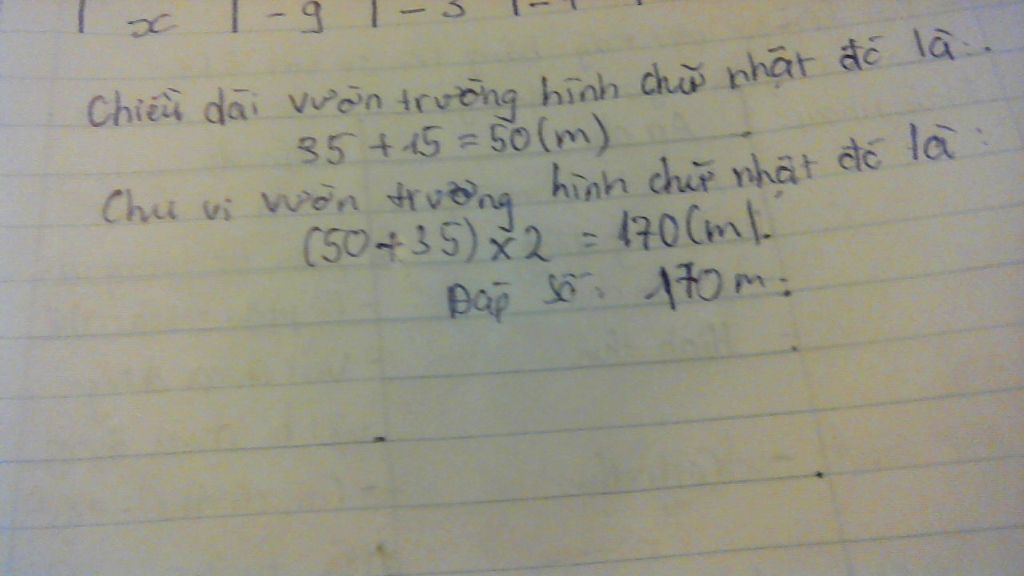 x | -9 | -3
Chiều dài vườn trường hình chữ nhật đó là:
35 + 15 = 50 (m)
Chu vi vườn trường hình chữ nhật đó là:
(50 + 35) x 2 = 170 (m).
Đáp số: 170 m: